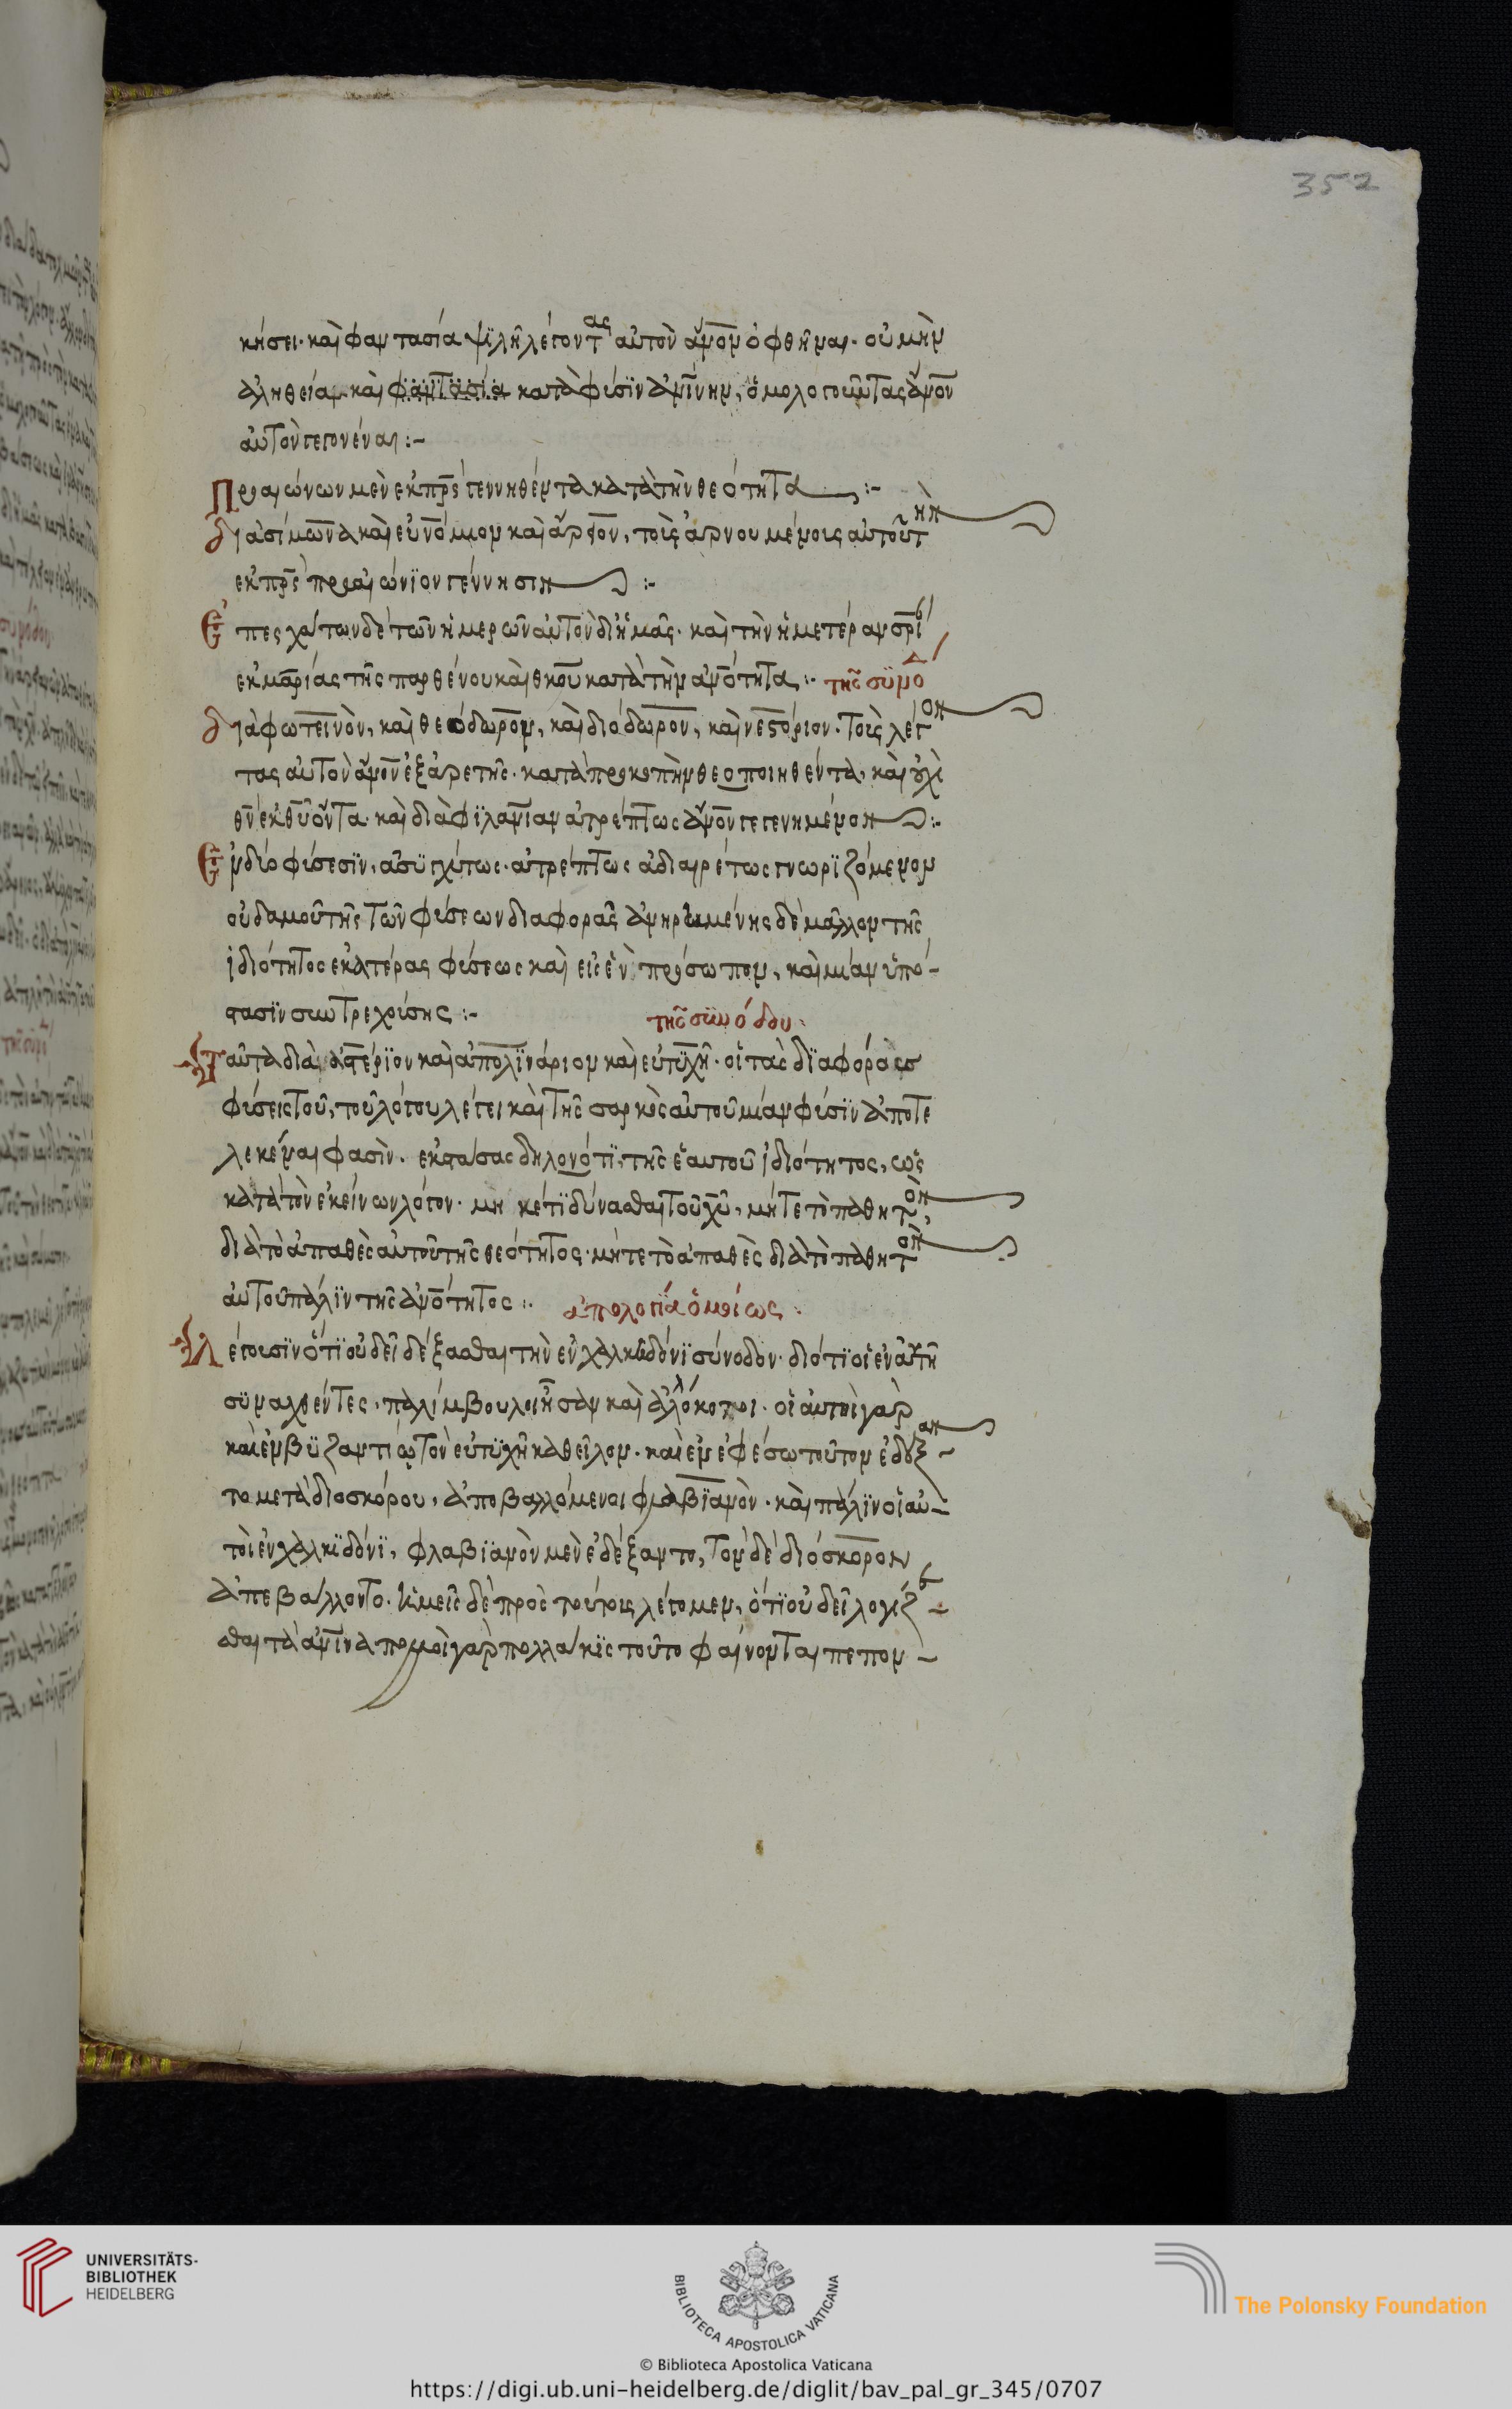 352
κήσει· καὶ φαντασία ψϊλῆ λέγοντας αὐτὸν ἄνον ὀφθῆναι· οὐ μὴν
ἀληθεία· καὶ φαντασία κατὰ φύσϊν ἀνΐνην, ὁμολογοῦντας ἄνον
αὐτὸν γεγονέναι :-
Προαιώνων μὲν ἐκ πρς γεννηθέντα κατὰ τὴν θεότητα :-
διὰ σίμωνα καὶ εὐνόμιον καὶ ἄρειον, τοὺς ἀρνουμένοις αὐτοῦ τὴν
ἐκ πρς προαιώνϊον γέννησιν :-
Ἐπ ἐσχάτων δὲ τῶν ἡμερῶν αὐτὸν δι ἡμᾶς· καὶ τὴν ἡμετέραν σρι
ἐκ μαρίας τῆς παρθένου καὶ θκου κατὰ τὴν ἀνότητα :· τῆς συνο
διὰ φωτεινὸν, καὶ θεόδωρον, καὶ διόδωρον, καὶ νεστόριον· τοὺς λέγον
τας αὐτὸν ἄνον ἐξ ἀρετῆς· κατὰ προκοπὴν θεοποιηθέντα, καὶ οὐχὶ
θν ἐκ θυ ὄντα· καὶ διὰ φϊλανΐαν ἀτρέπτως ἄνον γεγενημένον :-
Ἐν δύο φύσεσϊν, ἀσϋγχύτως· ἀτρέπτως ἀδιαιρέτως γνωρϊζόμενον
οὐδαμοῦ τῆς τῶν φύσεων διαφορᾶς ἀνηρημένης δὲ μᾶλλον τῆς
ἰδιότητος ἑκατέρας φύσεως καὶ εἰς ἓν πρόσωπον, καὶ μίαν ὑπό-
στασϊν συντρεχούσης :- τῆς συνόδου·
Ταῦτα διὰ ἀστέρϊον καὶ ἀπολϊνάριον καὶ εὐτϋχῆ· οἳ τὰς δϊαφόρους
φύσεις τοῦ, τοῦ λόγου λέγει καὶ τῆς σαρκὸς αὐτοῦ μίαν φύσϊν ἀποτε
λεκέναι φασὶν· ἐκστάσας δηλονότϊ, τῆς ἑαυτοῦ ἰδιότητος, ὡς
κατὰ τὸν ἐκείνων λόγον· μὴ κέτϊ δύνασθαι τοῦ χυ, μήτε τὸ παθητὸν,
διὰ τὸ ἀπαθὲς αὐτοῦ τῆς θεότητος· μήτε τὸ ἀπαθὲς διὰ τὸ παθητὸν
αὐτοῦ πάλϊν τῆς ἀνότητος :· ἀπολογία ὁμοίως :
Λέγουσϊν ὅτϊ οὐ δεῖ δέξασθαι τὴν ἐν χαλκιδόνϊ σύνοδον· διότϊ οἱ ἐν αὐτῆ
σϋναχθέντες, παλίμβουλοι ἦσαν καὶ ἀλλόκοτοι· οἱ αὐτοὶ γὰρ
καὶ ἐν βϋζαντίῳ τὸν εὐτϋχῆ καθεῖλον· καὶ ἐν ἐφέσω τοῦτον ἐδέξαν-
το μετὰ διοσκόρου, ἀποβαλλόμενοι φλαβϊανὸν· καὶ πάλϊν οἱ αὐ-
τοὶ ἐν χαλκϊδόνϊ, φλαβϊανὸν μὲν ἐδέξαντο, τὸν δὲ διόσκορον
ἀπεβάλλοντο· ἡμεῖς δὲ πρὸς τούτοις λέγομεν, ὅτϊ οὐ δεῖ λογίζε-
σθαι τὰ ἀνϊνα πολλοὶ γὰρ πολλάκϊς τοῦτο φαίνονται πεπον-
UNIVERSITÄTS-
BIBLIOTHEK
HEIDELBERG
BIBLIOTECA APOSTOLICA VATICANA
The Polonsky Foundation
© Biblioteca Apostolica Vaticana
https://digi.ub.uni-heidelberg.de/diglit/bav_pal_gr_345/0707